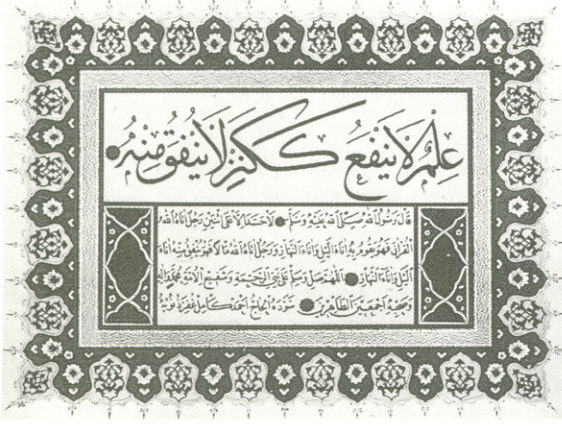 عِلْمٌ لَا يَنْفَعُ كَكَنْزٍ لَا يُنْفَقُ مِنْهُ
قال رسول الله صلى الله عليه وسلم لا حسد إلا على اثنتين رجل اتاه الله
القرآن فهو يقوم به اناء الليل واناء النهار ورجل اتاه الله مالا فهو ينفق منه اناء
الليل واناء النهار اللهم صل وسلم على نبي الرحمة وشفيع الأمة محمد وآله
وصحبه أجمعين الطاهرين سوده الحاج أحمد كامل غفر ذنوبه